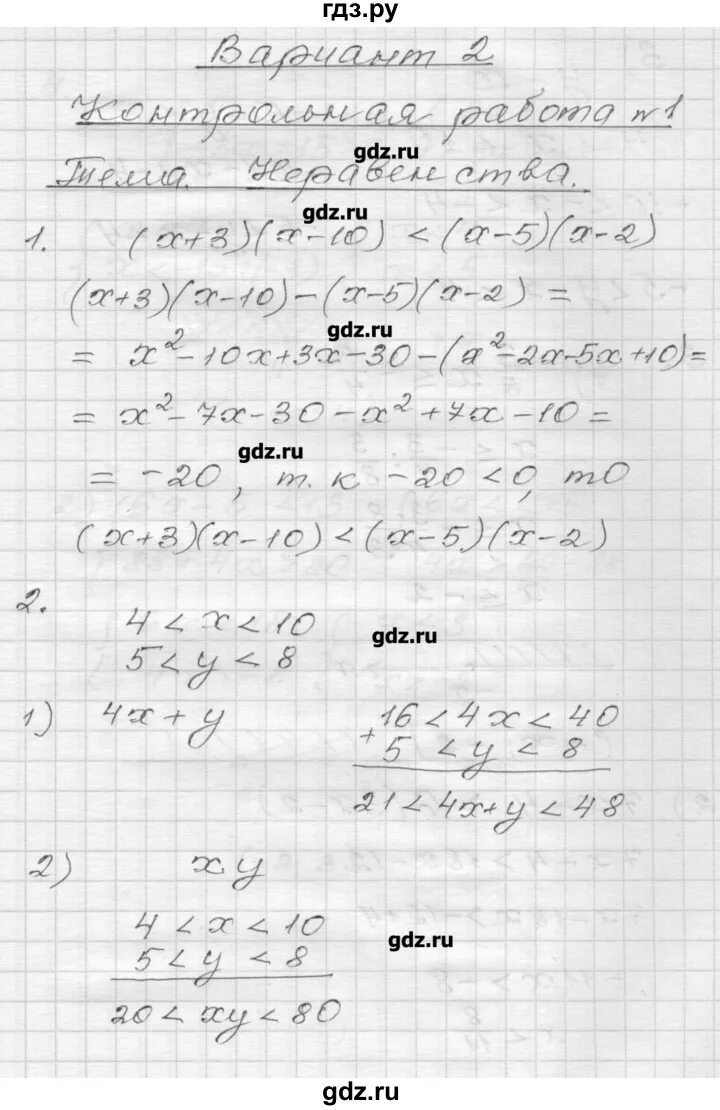 гдз.ру
Вариант 2
Контрольная работа №1
gdz.ru
Тема. Неравенства.
gdz.ru
1. (x+3)(x-10) < (x-5)(x-2)
(x+3)(x-10)-(x-5)(x-2) =
gdz.ru
= x²-10x+3x-30-(x²-2x-5x+10)=
= x²-7x-30-x²+7x-10=
gdz.ru
= -20, т.к -20 <0, то
(x+3)(x-10)<(x-5)(x-2)
2. 4 < x < 10
gdz.ru
5 < y < 8
1) 4x+y 16 < 4x < 40
+ 5 < y < 8
21 < 4x+y < 48
2) xy
4 < x < 10
gdz.ru
5 < y < 8
20 < xy < 80
gdz.ru